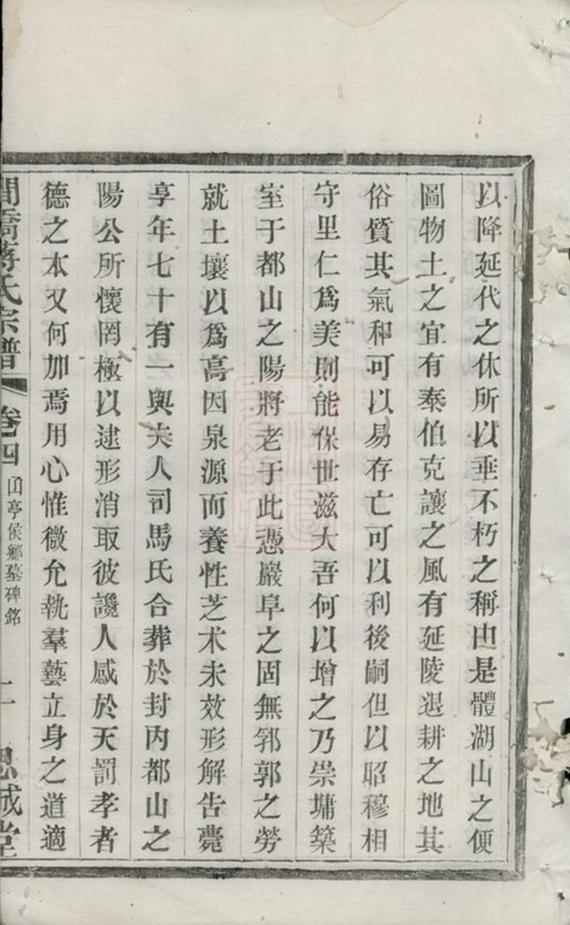 以降延代之休所以垂不朽之稱由是體湖山之便
圖物土之宜有泰伯克讓之風有延陵退耕之地其
俗質其氣和可以易存亡可以利後嗣但以昭穆相
守里仁爲美則能保世滋大吾何以增之乃崇墉築
室于都山之陽將老于此憑巖阜之固無郛郭之勞
就土壤以爲高因泉源而養性芝术未效形解告薨
享年七十有一與夫人司馬氏合葬於封内都山之
陽公所懷罔極以逮形消取彼讒人感於天罰孝者
德之本又何加焉用心惟微允執羣藝立身之道適
橋蔣氏宗譜 卷四 亭侯鄉墓碑銘 二 思誠堂